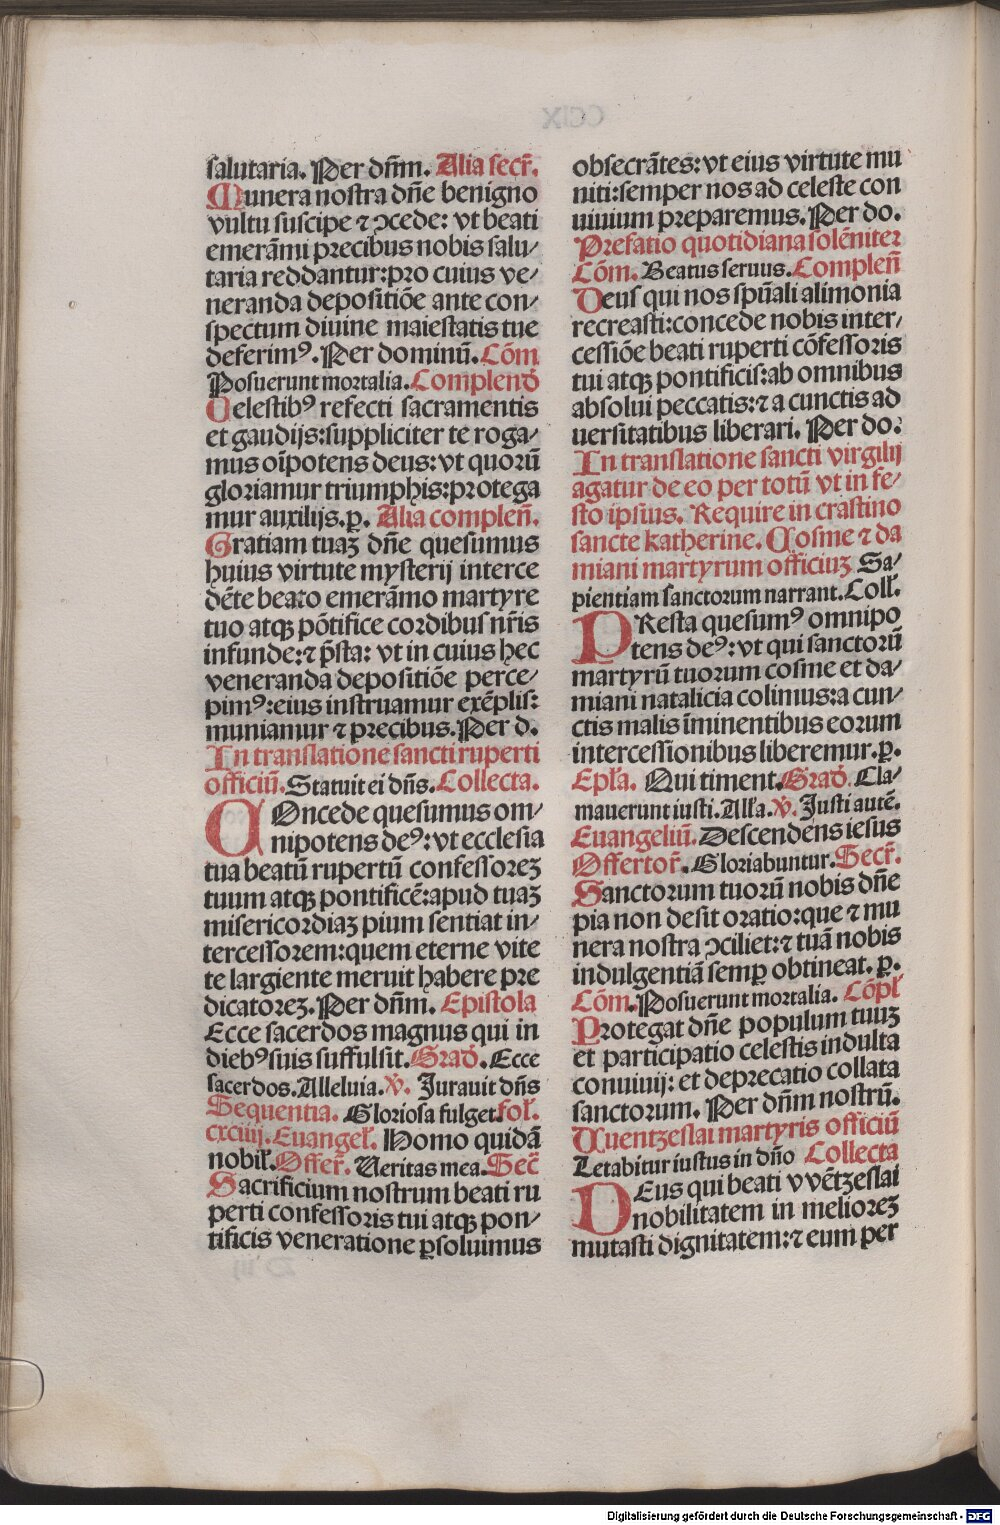 salutaria. Per dn̄m. Alia secr̄.
Munera nostra dn̄e benigno
vultu suscipe ⁊ ꝯcede: vt beati
emerāmi precibus nobis salu⸗
taria reddantur: pro cuius ve⸗
neranda depositiōe ante con⸗
spectum diuine maiestatis tue
deferimꝰ. Per dominū. Cōm
Posuerunt mortalia. Complend̄
Celestibꝰ refecti sacramentis
et gaudijs: suppliciter te roga⸗
mus oīpotens deus: vt quorū
gloriamur triumphis: protega
mur auxilijs. ꝑ. Alia compleñ.
Gratiam tuaꝫ dn̄e quesumus
huius virtute mysterij interce
dēte beato emerāmo martyre
tuo atqꝫ pōtifice cordibus nr̄is
infunde: ⁊ p̄sta: vt in cuius hec
veneranda depositiōe perce⸗
pimꝰ: eius instruamur exēplis:
muniamur ⁊ precibus. Per d.
In translatione sancti ruperti
officiū. Statuit ei dn̄s. Collecta.
COncede quesumus om⸗
nipotens deꝰ: vt ecclesia
tua beatū rupertū confessoreꝫ
tuum atqꝫ pontificē: apud tuaꝫ
misericordiaꝫ pium sentiat in⸗
tercessorem: quem eterne vite
te largiente meruit habere pre
dicatoreꝫ. Per dn̄m. Epistola
Ecce sacerdos magnus qui in
diebꝰ suis suffulsit. Grad̄. Ecce
sacerdos. Alleluia. v̄. Jurauit dn̄s
Sequentia. Gloriosa fulget. fol̄.
cxciiij. Euangel̄. Homo quidā
nobil̄. Offer̄. Veritas mea. Sec̄
Sacrificium nostrum beati ru
perti confessoris tui atqꝫ pon⸗
tificis veneratione ꝑsoluimus
obsecrātes: vt eius virtute mu
niti: semper nos ad celeste con
uiuium preparemus. Per do.
Prefatio quotidiana solēniter
Cōm. Beatus seruus. Compleñ
Deus qui nos spūali alimonia
recreasti: concede nobis inter⸗
cessiōe beati ruperti cōfessoris
tui atqꝫ pontificis: ab omnibus
absolui peccatis: ⁊ a cunctis ad
uersitatibus liberari. Per do:
In translatione sancti virgilij
agatur de eo per totū vt in fe⸗
sto ipsius. Require in crastino
sancte katherine. Cosme ⁊ da
miani martyrum officiuꝫ Sa⸗
pientiam sanctorum narrant. Coll̄.
PResta quesumꝰ omnipo
tens deꝰ: vt qui sanctorū
martyrū tuorum cosme et da⸗
miani natalicia colimus: a cun⸗
ctis malis īminentibus eorum
intercessionibus liberemur. ꝑ.
Epl̄a. Qui timent. Grad̄. Cla⸗
mauerunt iusti. All̄a. v̄. Justi autē.
Euangeliū. Descendens iesus
Offertor̄. Gloriabuntur. Secr̄.
Sanctorum tuorū nobis dn̄e
pia non desit oratio: que ⁊ mu
nera nostra ꝯciliet: ⁊ tuā nobis
indulgentiā semꝑ obtineat. ꝑ.
Cōm. Posuerunt mortalia. Cōpl̄
Protegat dn̄e populum tuuꝫ
et participatio celestis indulta
conuiuij: et deprecatio collata
sanctorum. Per dn̄m nostrū.
Wentzeslai martyris officiū
Letabitur iustus in dn̄o Collecta
DEus qui beati vvētzeslai
nobilitatem in melioreꝫ
mutasti dignitatem: ⁊ eum per
Digitalisierung gefördert durch die Deutsche Forschungsgemeinschaft - DFG